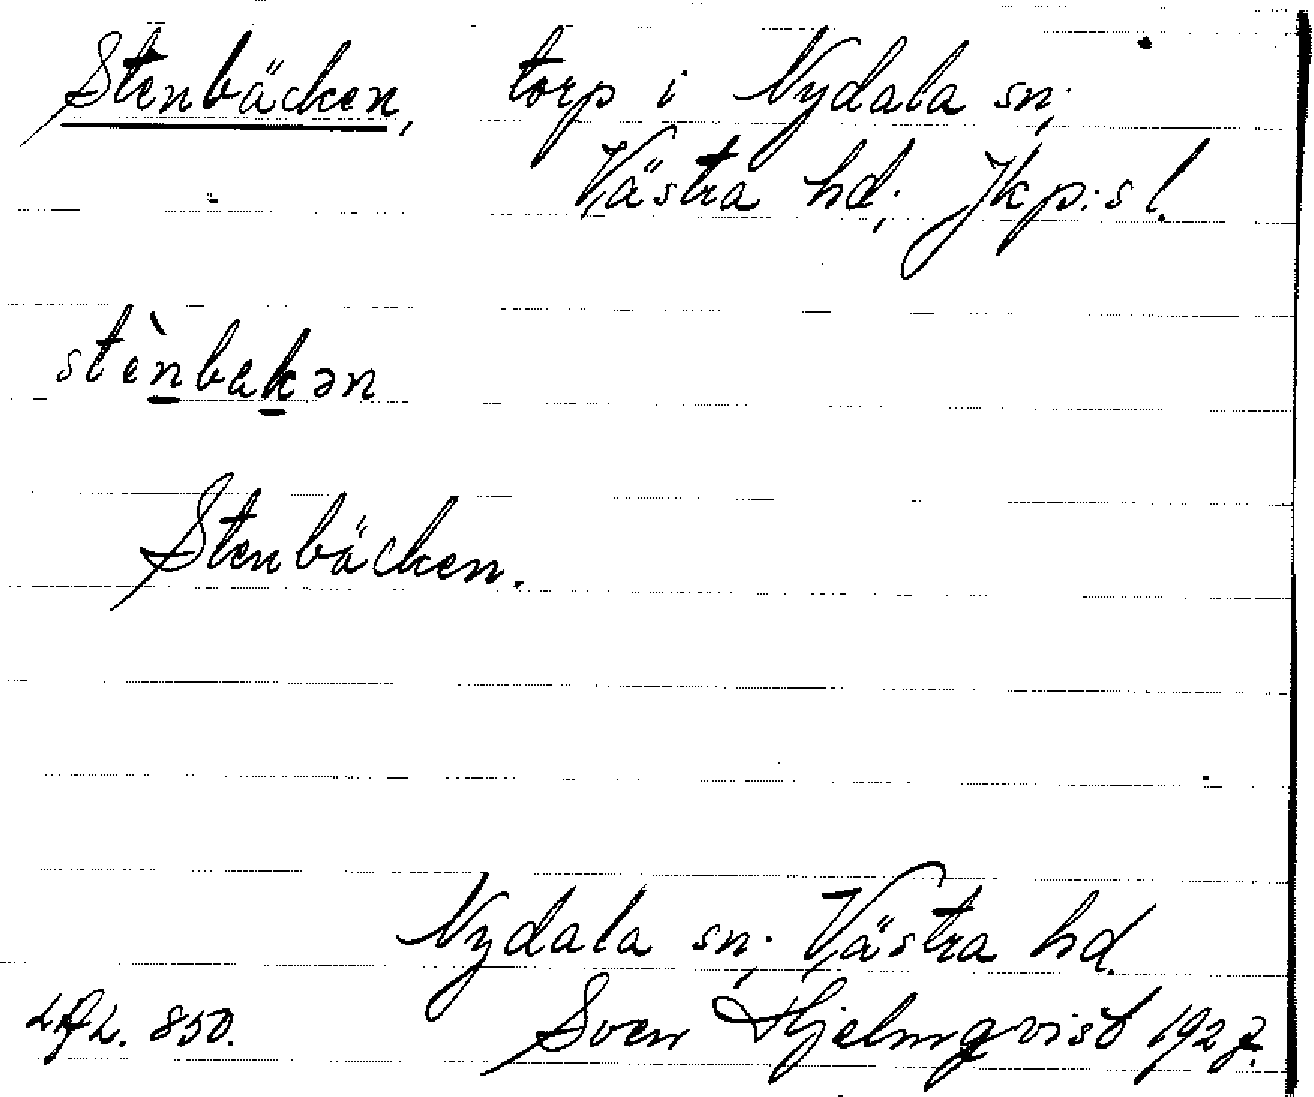 Stenbäcken, torp i Nydala sn;
Västra hd; Jkp:s l.
stènbakən
Stenbäcken.
Nydala sn; Västra hd.
850. Sven Hjelmqvist 1927.